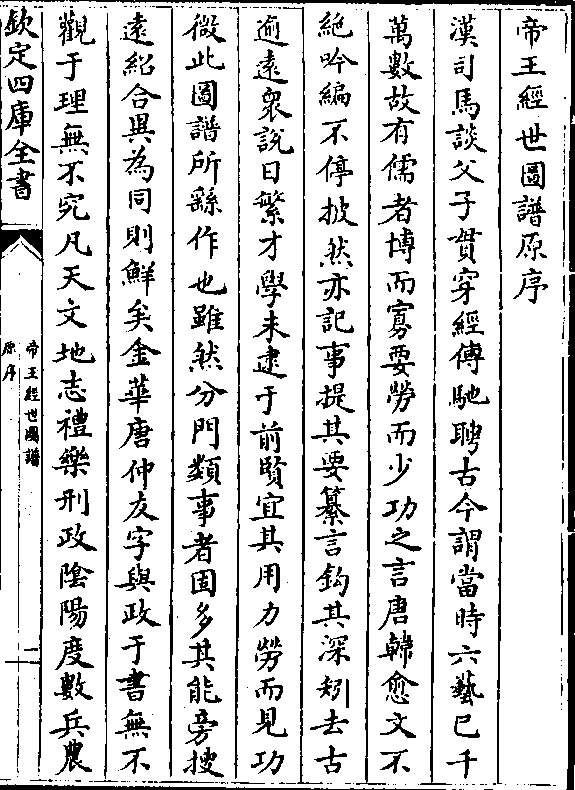 帝王經世圖譜原序
漢司馬談父子貫穿經傳馳騁古今謂當時六藝已千
萬數故有儒者博而寡要勞而少功之言唐韓愈文不
絶吟編不停披然亦記事提其要纂言鈎其深矧去古
逾遠衆說日繁才學未逮于前賢宜其用力勞而見功
微此圖譜所繇作也雖然分門類事者固多其能旁搜
遠紹合異為同則鮮矣金華唐仲友字與政于書無不
觀于理無不究凡天文地志禮樂刑政陰陽度數兵農
欽定四庫全書
帝王經世圖譜
原序
一